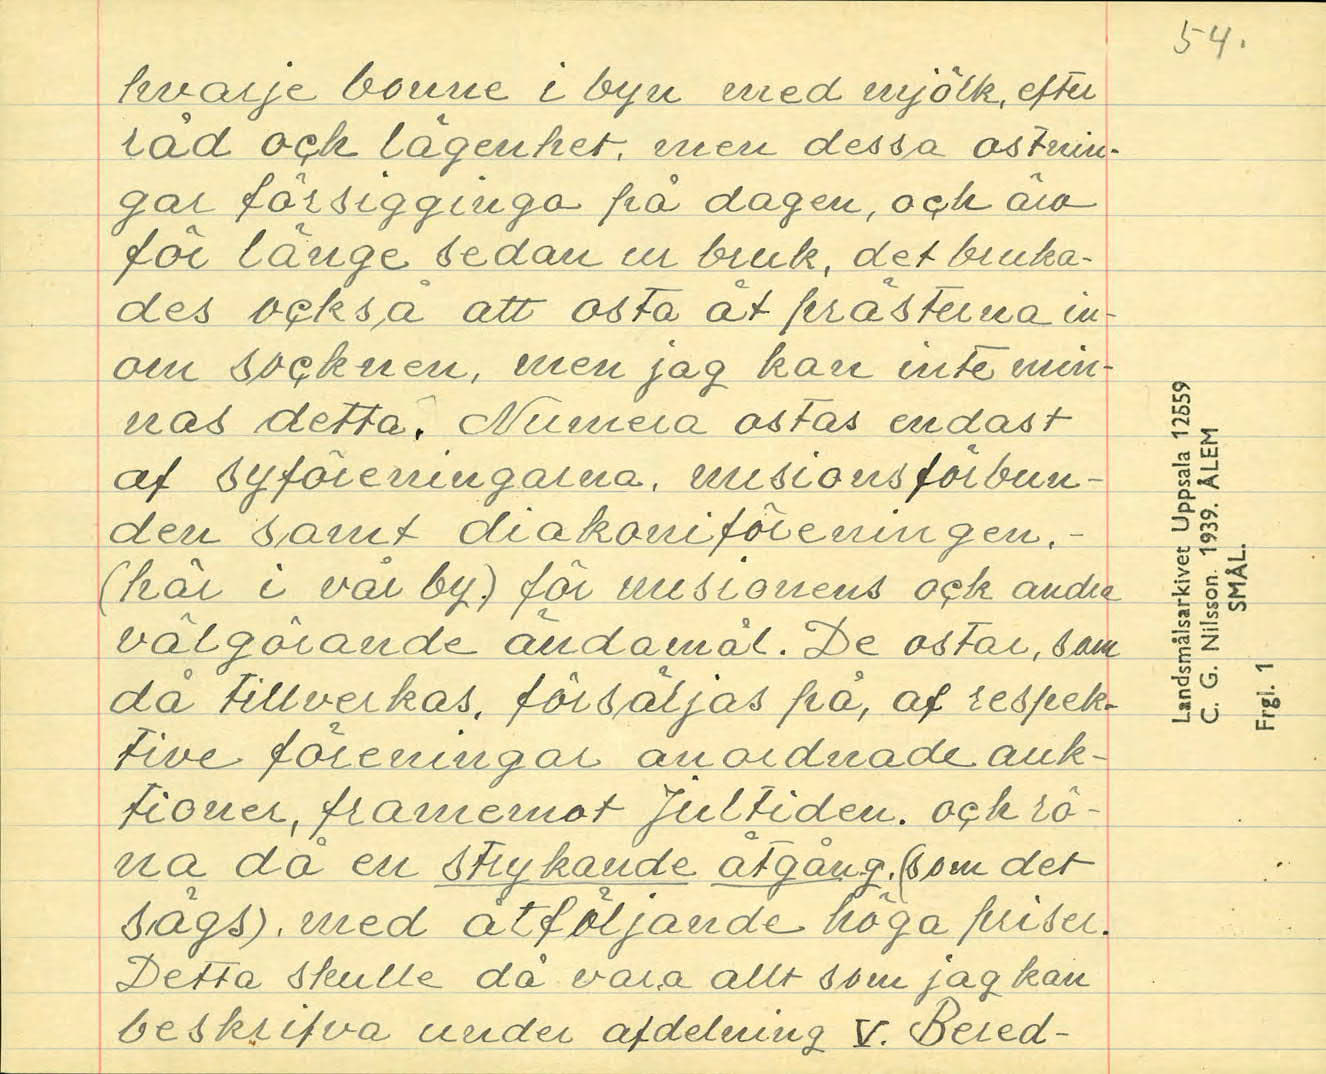 54.
hvarje bonne i byn med mjölk, efter
råd och lägenhet, men dessa ostnin-
gar försiggingo på dagen, och äro
för länge sedan ur bruk, det bruka-
des också att osta åt prästerna in-
om socknen, men jag kan inte min-
nas detta. Numera ostas endast
af syföreningarna, misionsförbun-
den samt diakoniföreningen, -
(här i vår by.) för misionens och andra
välgörande ändamål. De ostar, som
då tillverkas, försäljas på, af respek-
tive föreningar anordnade auk-
tioner, framemot Jultiden. och rö-
na då en strykande åtgång, (som det
sägs), med åtföljande höga priser.
Detta skulle då vara allt som jag kan
beskrifva under afdelning V. Bered-
Landsmålsarkivet Uppsala 12559
C. G. Nilsson. 1939. ÅLEM
SMÅL.
Frgl. 1